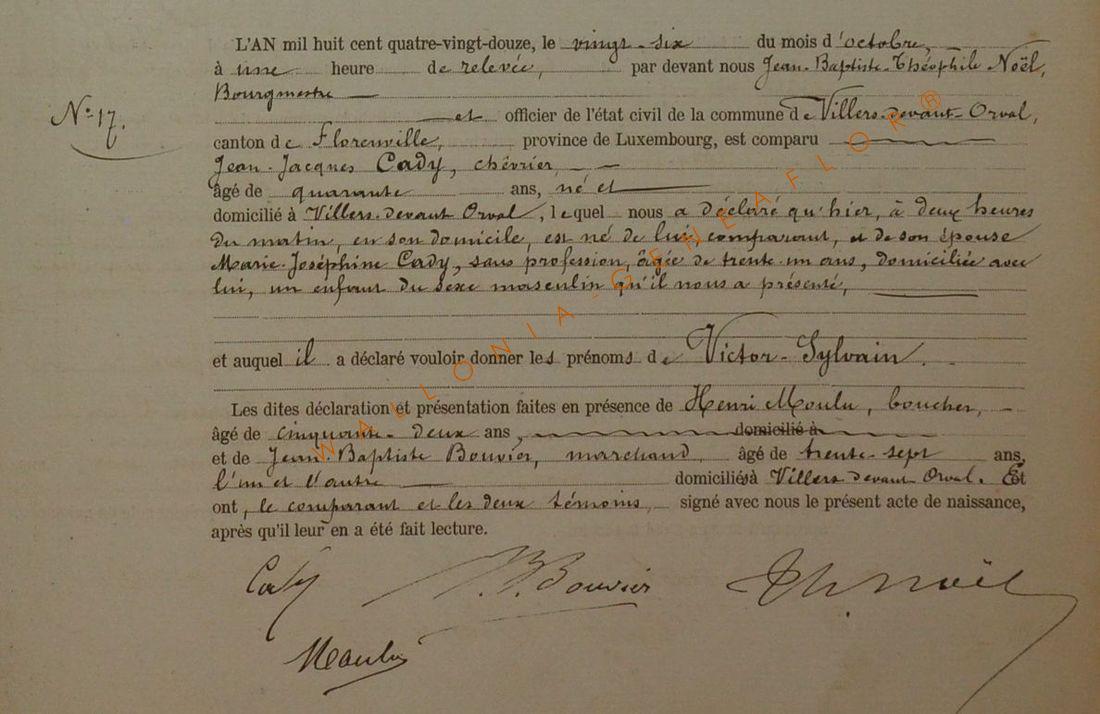 L'AN mil huit cent quatre-vingt-douze, le vingt-six du mois d'octobre,
à une heure de relevée, par devant nous Jean-Baptiste-Théophile Noël,
Bourgmestre
N° 17.
et officier de l'état civil de la commune de Villers-devant-Orval,
canton de Florenville, province de Luxembourg, est comparu
Jean-Jacques Cady, chévrier,
âgé de quarante ans, né et
domicilié à Villers-devant Orval, lequel nous a déclaré qu'hier, à deux heures
du matin, en son domicile, est né de lui, comparant, et de son épouse
Marie-Joséphine Cady, sans profession, âgée de trente-un ans, domiciliée avec
lui, un enfant du sexe masculin qu'il nous a présenté,
et auquel il a déclaré vouloir donner les prénoms de Victor-Sylvain.
Les dites déclaration et présentation faites en présence de Henri Moulu, boucher,
âgé de cinquante-deux ans, domicilié à
et de Jean-Baptiste Bouvier, marchand, âgé de trente-sept ans,
l'un et l'autre domiciliés à Villers devant Orval. Et
ont, le comparant et les deux témoins, signé avec nous le présent acte de naissance,
après qu'il leur en a été fait lecture.
Cady J. B. Bouvier Th. Noël
Moulu
WALLONIA-GENEAFLOR®